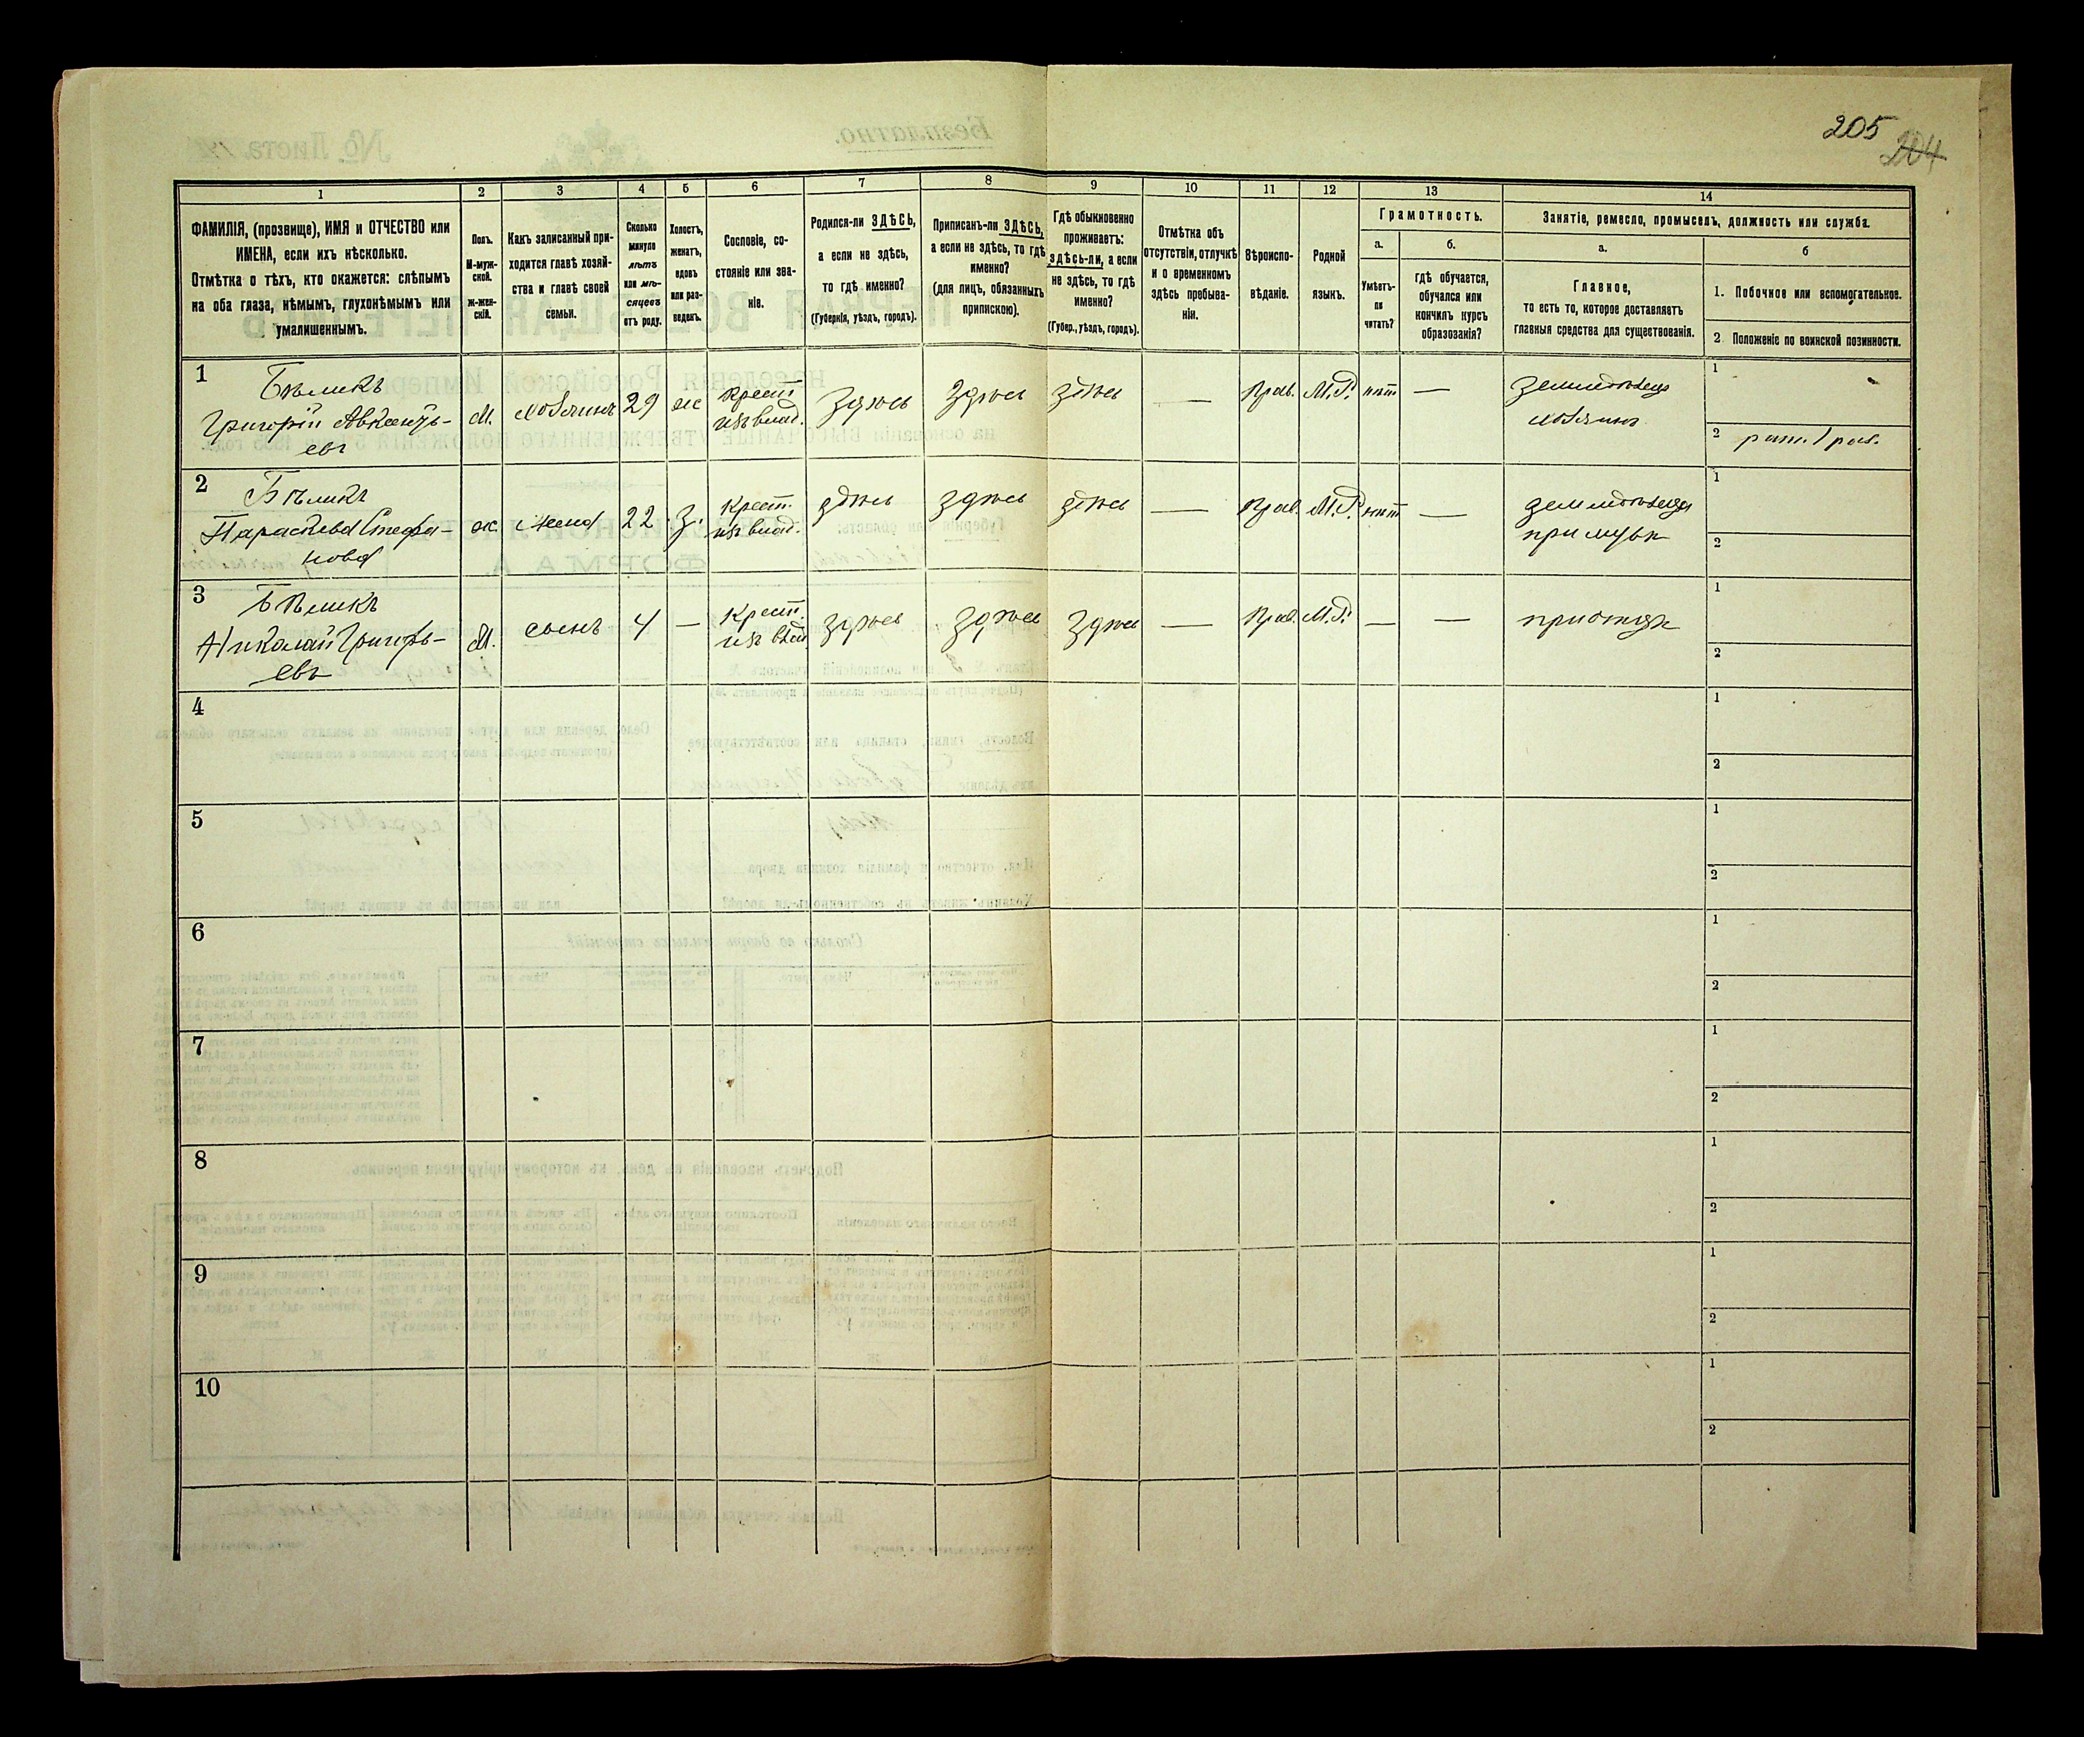 205
204
1 2 3 4 5 6 7 8 9 10 11 12 13 14
ФАМИЛІЯ, (прозвище), ИМЯ и ОТЧЕСТВО или
ИМЕНА, если ихъ нѣсколько.
Отмѣтка о тѣхъ, кто окажется: слѣпымъ
на оба глаза, нѣмымъ, глухонѣмымъ или
умалишеннымъ.
Полъ.
М-муж-
ской.
ж-жен-
скій.
Какъ записанный при-
ходится главѣ хозяй-
ства и главѣ своей
семьи.
Сколько
минуло
лѣтъ
или мѣ-
сяцевъ
отъ роду.
Холостъ,
женатъ,
вдовъ
или раз-
веденъ.
Сословіе, со-
стояніе или зва-
ніе.
Родился-ли ЗДѢСЬ,
а если не здѣсь,
то гдѣ именно?
(Губернія, уѣздъ, городъ).
Приписанъ-ли ЗДѢСЬ,
а если не здѣсь, то гдѣ
именно?
(для лицъ, обязанныхъ
припискою).
Гдѣ обыкновенно
проживаетъ:
здѣсь-ли, а если
не здѣсь, то гдѣ
именно?
(Губер., уѣздъ, городъ).
Отмѣтка объ
отсутствіи, отлучкѣ
и о временномъ
здѣсь пребыва-
ніи.
Вѣроиспо-
вѣданіе.
Родной
языкъ.
Грамотность.
а.
Умѣетъ-
ли
читать?
б.
гдѣ обучается,
обучался или
кончилъ курсъ
образованія?
Занятіе, ремесло, промыселъ, должность или служба.
а.
Главное,
то есть то, которое доставляетъ
главныя средства для существованія.
б
1. Побочное или вспомогательное.
2. Положеніе по воинской повинности.
1
Бѣликъ
Григорій Авксентъ-
евъ
М. хозяинъ 29 ж
Крест.
изъ влад.
Здѣсь Здѣсь здѣсь — Прав. М.Р. нѣт —
земледѣлецъ
хозяинъ
1
2
2
Бѣликъ
Параскева Стефа-
нова
ж. жена 22 З.
Крест.
изъ влад.
здѣсь здѣсь здѣсь — Прав. М.Р. нѣт —
при мужѣ
1
2
3
Бѣликъ
Николай Григорь-
евъ
М. сынъ 4 —
Крест.
изъ влад.
здѣсь здѣсь здѣсь — Прав. М.Р. — —
при отцѣ
1
2
4
1
2
5
1
2
6
1
2
7
1
2
8
1
2
9
1
2
10
1
2